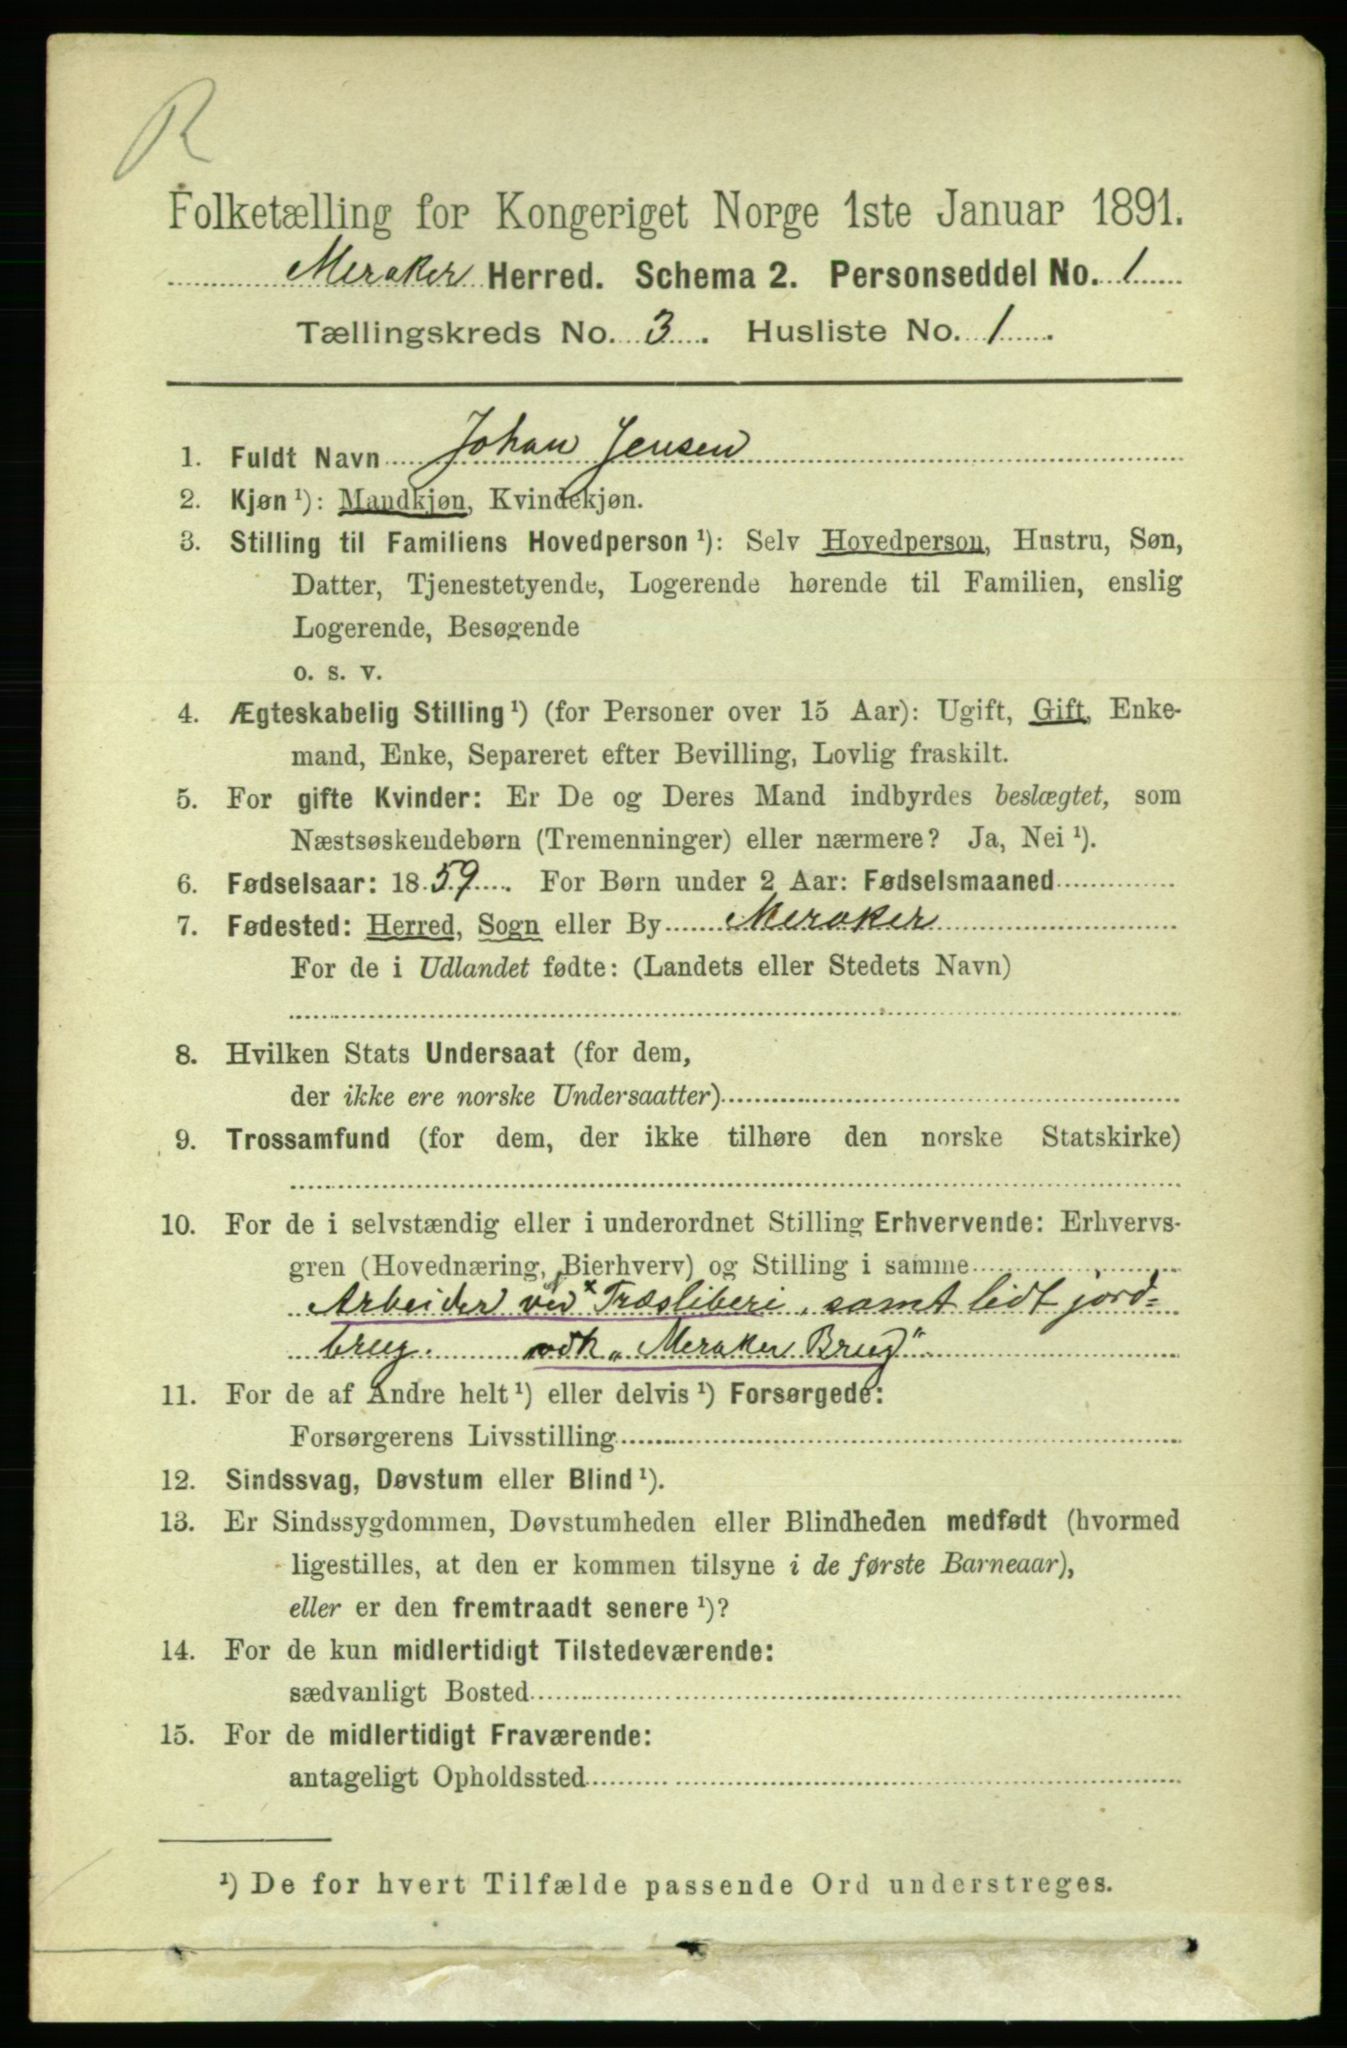 R
Folketælling for Kongeriget Norge 1ste Januar 1891.
Meraker Herred. Schema 2. Personseddel No. 1
Tællingskreds No. 3. Husliste No. 1.
1. Fuldt Navn Johan Jensen
2. Kjøn ¹): Mandkjøn, Kvindekjøn.
3. Stilling til Familiens Hovedperson ¹): Selv Hovedperson, Hustru, Søn,
Datter, Tjenestetyende, Logerende hørende til Familien, enslig
Logerende, Besøgende
o. s. v.
4. Ægteskabelig Stilling ¹) (for Personer over 15 Aar): Ugift, Gift, Enke-
mand, Enke, Separeret efter Bevilling, Lovlig fraskilt.
5. For gifte Kvinder: Er De og Deres Mand indbyrdes beslægtet, som
Næstsøskendebørn (Tremenninger) eller nærmere? Ja, Nei ¹).
6. Fødselsaar: 1859. For Børn under 2 Aar: Fødselsmaaned
7. Fødested: Herred, Sogn eller By Meraker
For de i Udlandet fødte: (Landets eller Stedets Navn)
8. Hvilken Stats Undersaat (for dem,
der ikke ere norske Undersaatter)
9. Trossamfund (for dem, der ikke tilhøre den norske Statskirke)
10. For de i selvstændig eller i underordnet Stilling Erhvervende: Erhvervs-
gren (Hovednæring, Bierhverv) og Stilling i samme
Arbeider ved × Træsliberi, samt lidt jord-
brug. ved „Meraker Brug“
11. For de af Andre helt ¹) eller delvis ¹) Forsørgede:
Forsørgerens Livsstilling
12. Sindssvag, Døvstum eller Blind ¹).
13. Er Sindssygdommen, Døvstumheden eller Blindheden medfødt (hvormed
ligestilles, at den er kommen tilsyne i de første Barneaar),
eller er den fremtraadt senere ¹)?
14. For de kun midlertidigt Tilstedeværende:
sædvanligt Bosted
15. For de midlertidigt Fraværende:
antageligt Opholdssted
¹) De for hvert Tilfælde passende Ord understreges.